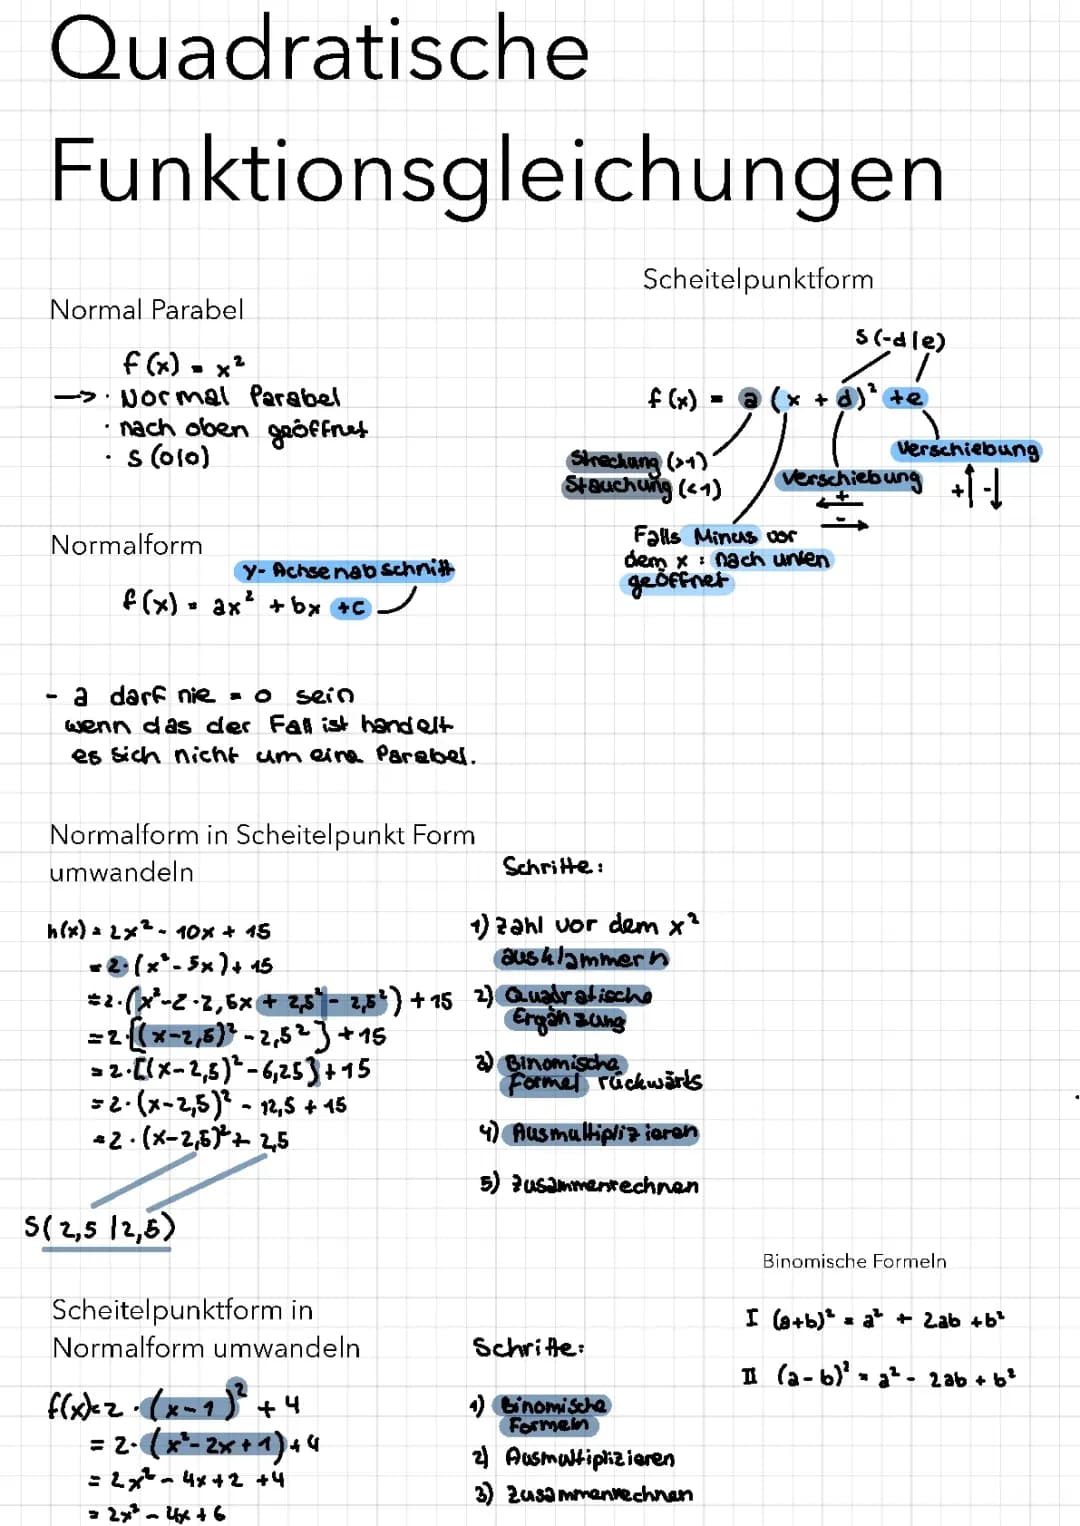 Quadratische
Funktionsgleichungen
Normal Parabel
f(x) = x²
→ · Normal Parabel
· nach oben geöffnet
· S (0|0)
Normalform
y-Achsenabschnitt
f(x) = ax² + bx +c
- a darf nie = 0 sein
wenn das der Fall ist handelt
es sich nicht um eine Parabel.
Scheitelpunktform
S(-d|e)
f(x) = a (x + d)² +e
Streckung (>1)
Stauchung (<1)
Verschiebung
+
-
Verschiebung
+↑ -↓
Falls Minus vor
dem x : nach unten
geöffnet
Normalform in Scheitelpunkt Form
umwandeln
h(x) = 2x² - 10x + 15
= 2·(x² - 5x) + 15
= 2·(x² - 2·2,5x + 2,5² - 2,5²) + 15
= 2·[(x-2,5)² - 2,5²] + 15
= 2·[(x-2,5)² - 6,25] + 15
= 2·(x-2,5)² - 12,5 + 15
= 2·(x-2,5)² + 2,5
S(2,5 |2,5)
Schritte:
1) Zahl vor dem x²
ausklammern
2) Quadratische
Ergänzung
3) Binomische
Formel rückwärts
4) Ausmultiplizieren
5) Zusammenrechnen
Scheitelpunktform in
Normalform umwandeln
f(x)= 2 · (x-1)² + 4
= 2·(x² - 2x + 1) + 4
= 2x² - 4x + 2 + 4
= 2x² - 4x + 6
Schritte:
1) Binomische
Formeln
2) Ausmultiplizieren
3) Zusammenrechnen
Binomische Formeln
I (a+b)² = a² + 2ab + b²
II (a-b)² = a² - 2ab + b²